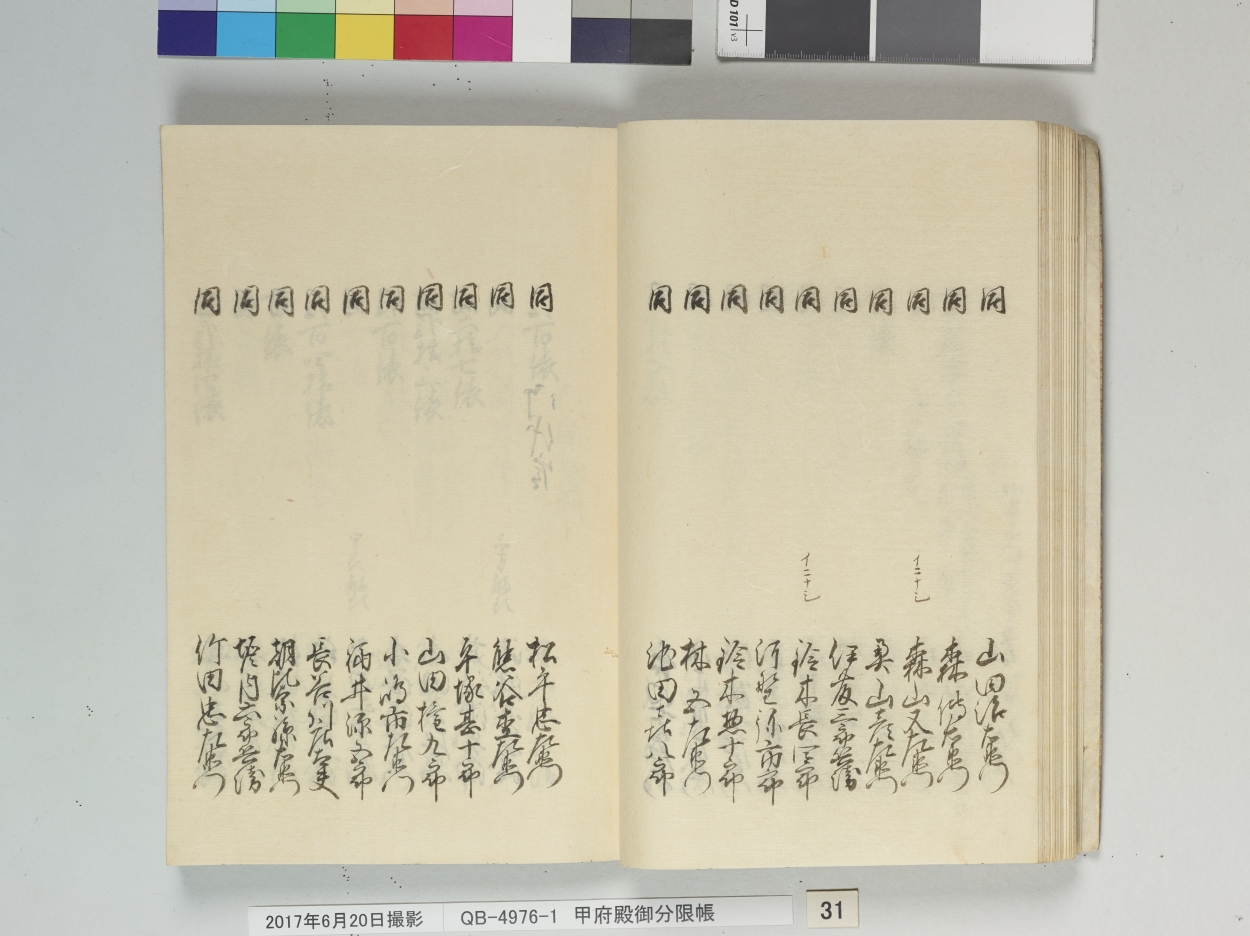 同 山田治左衛門
同 森 伝右衛門
同 イニナシ 森山又左衛門
同 桑山彦左衛門
同 伊藤三郎兵衛
同 イニナシ 鈴木長四郎
同 河野弥市郎
同 鈴木惣十郎
同 林 又左衛門
同 池田喜八郎
同 松平忠左衛門
同 熊谷杢左衛門
同 平塚甚十郎
同 山田権九郎
同 小嶋市左衛門
同 酒井源五郎
同 長谷川弥左夫
同 朝比奈源右衛門
同 堀内三郎兵衛
同 竹田忠左衛門
2017年6月20日撮影 QB-4976-1 甲府殿御分限帳
31
D 101 v3